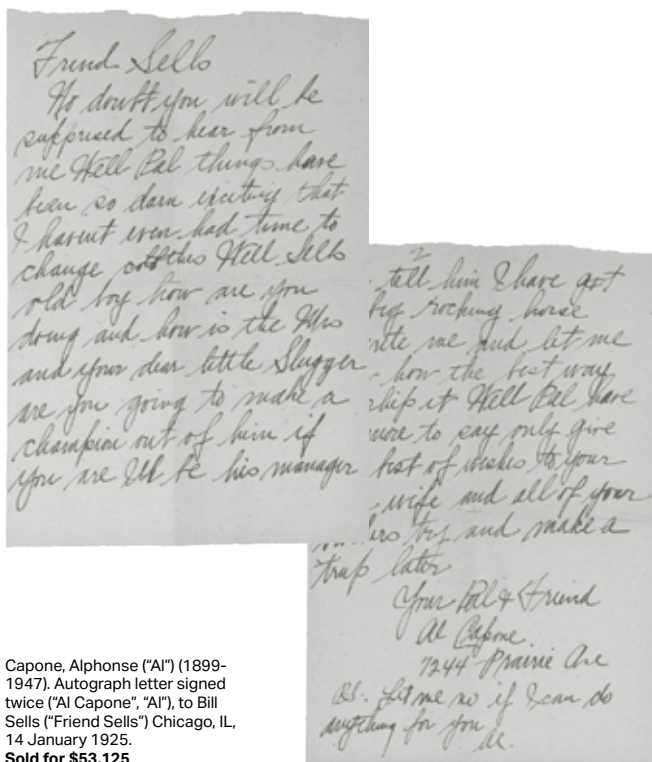 Frend Sells
No doubt you will be
supprised to hear from
me Well Pal things have
been so darn exciting that
I havent even had time to
change cothes Well Sells
old boy how are you
doing and how is the Mrs
and your dear little Slugger
are you going to make a
champion out of him if
you are Ill be his manager
2
tell him I have got
big rocking horse
rite me and let me
how the best way
ship it Well Pal have
more to say only give
best of wishes to your
wife and all of your
try and make a
trip later
Your Pal & Friend
Al Capone
7244 Prairie Ave
P.S. Let me no if I can do
anything for you
Al.
Capone, Alphonse (“Al”) (1899-
1947). Autograph letter signed
twice (“Al Capone”, “Al”), to Bill
Sells (“Friend Sells”) Chicago, IL,
14 January 1925.
Sold for $53,125